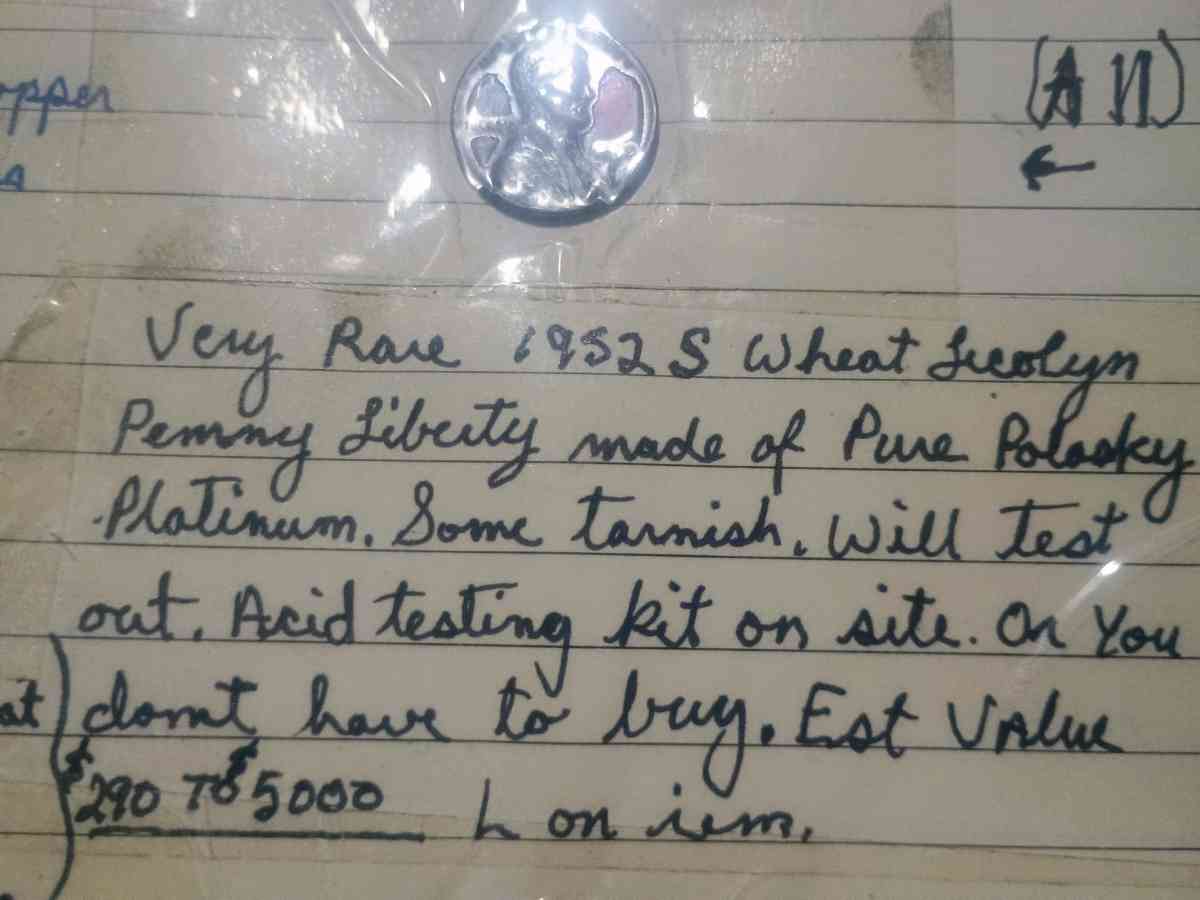 opper
(A N)
Very Rare 1952 S Wheat Licolyn
Penny Liberty made of Pure Polasky
Platinum. Some tarnish. Will test
out. Acid testing kit on site. On You
at dont have to buy. Est Value
$290 To $5000 L on iem.